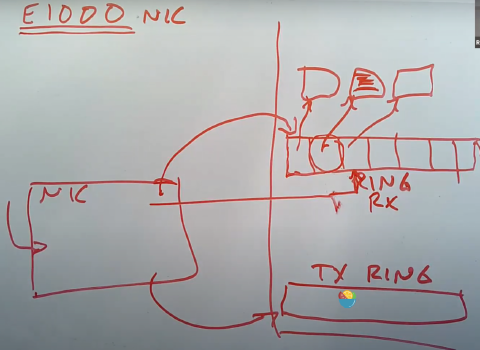 E1000 NIC
NIC
RING
RX
TX RING